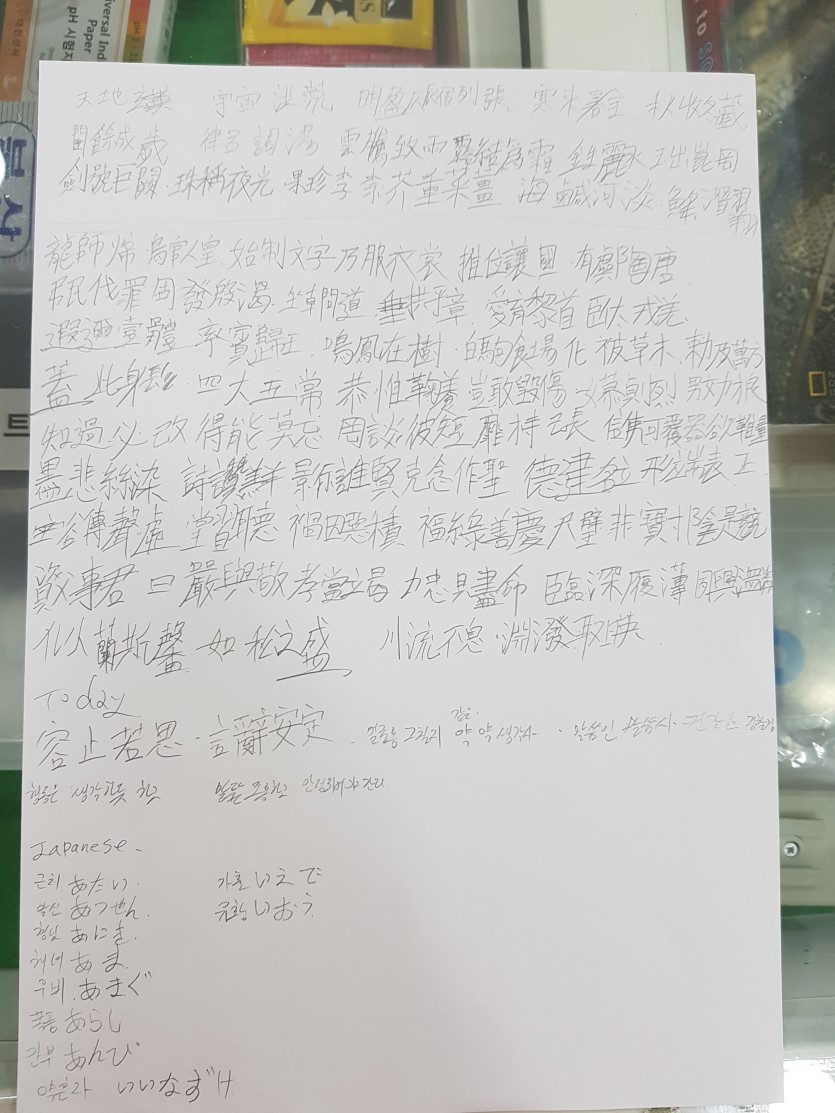 pH 시험지
天地玄黃 宇宙洪荒 盈昃宿列張 寒來暑往 秋收冬藏
閏餘成歲 律呂調湯 雲騰致雨 露結爲霜 金生麗水 玉出崑岡
劍號巨闕 珠稱夜光 果珍李柰 芥重菜薑 海鹹河淡 鱗潛羽翔
龍師火帝 鳥官人皇 始制文字 乃服衣裳 推位讓國 有虞陶唐
弔民伐罪 周發殷湯 坐朝問道 垂拱平章 愛育黎首 臣伏戎羌
遐邇壹體 率賓歸王 鳴鳳在樹 白駒食場 化被草木 賴及萬方
蓋此身髮 四大五常 恭惟鞠養 豈敢毁傷 女慕貞烈 男效才良
知過必改 得能莫忘 罔談彼短 靡恃己長 信使可覆 器欲難量
墨悲絲染 詩讚羔羊 景行維賢 克念作聖 德建名立 形端表正
空谷傳聲 虛堂習聽 禍因惡積 福緣善慶 尺璧非寶 寸陰是競
資父事君 曰嚴與敬 孝當竭力 忠則盡命 臨深履薄 夙興溫凊
似蘭斯馨 如松之盛 川流不息 淵澄取映
Today
容止若思 · 言辭安定 같을 약 생각사 · 말씀언 말씀사
행동은 생각하듯 하고
Japanese -
근처 あたい
알선 あつせん
형님 あにき
가출 いえで
유황 いおう
해녀 あま
우비 あまぐ
폭풍 あらし
안부 あんぴ
약혼자 いいなずけ